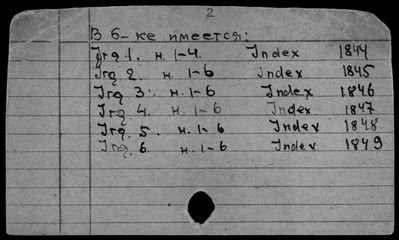 2
В б-ке имеется:
Jrg 1. н. 1-4. Index 1844
Jrg 2. н. 1-6 Index 1845
Jrg 3. н. 1-6 Index 1846
Jrg 4. н. 1-6 Index 1847
Jrg. 5. н. 1-6 Index 1848
Jrg. 6. н. 1-6 Index 1849